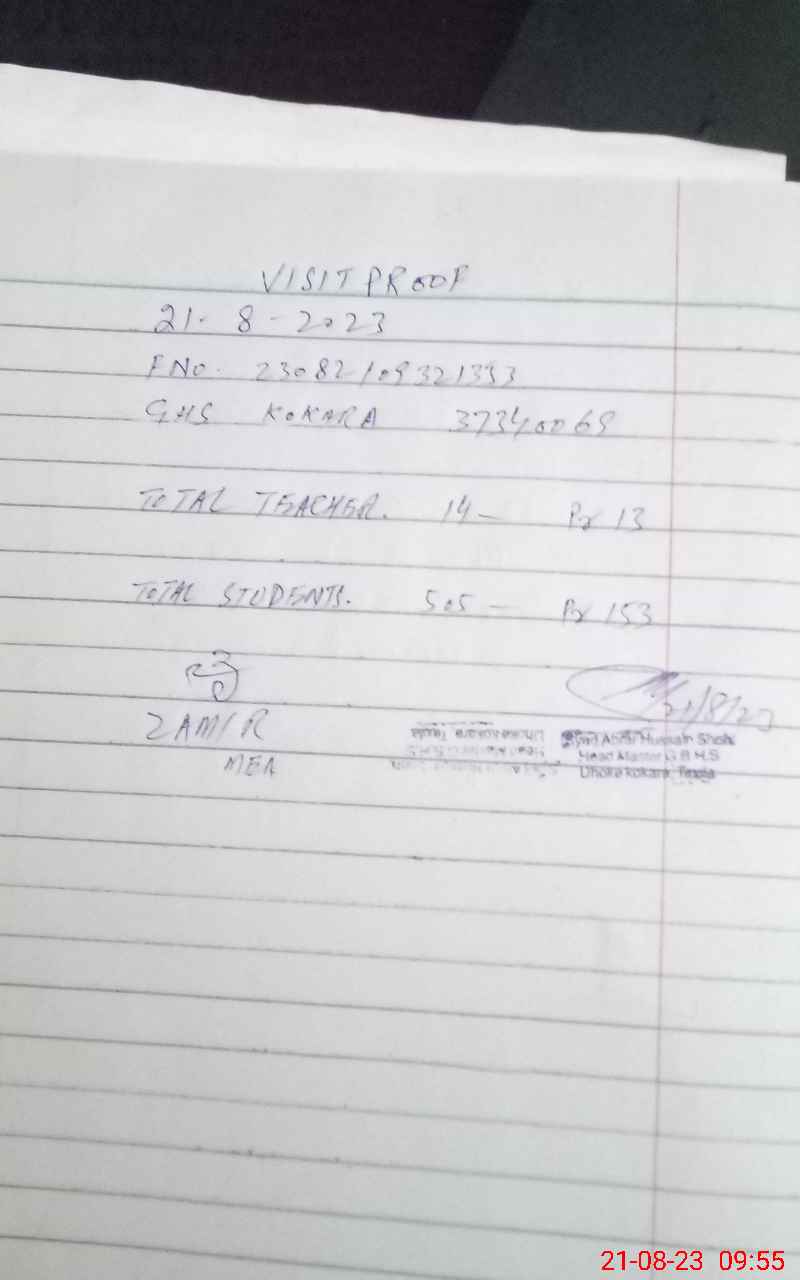 VISIT PROOF
21-8-2023
FNO. 230821093213
GHS KOKARA 37340069
TOTAL TEACHER. 14 — Pr 13
TOTAL STUDENTS. 505 — Pr 153
21/8/23
ZAMIR
MEA
Hussain Shah
Head Master G.B.H.S
Dhoke kokara,
21-08-23 09:55